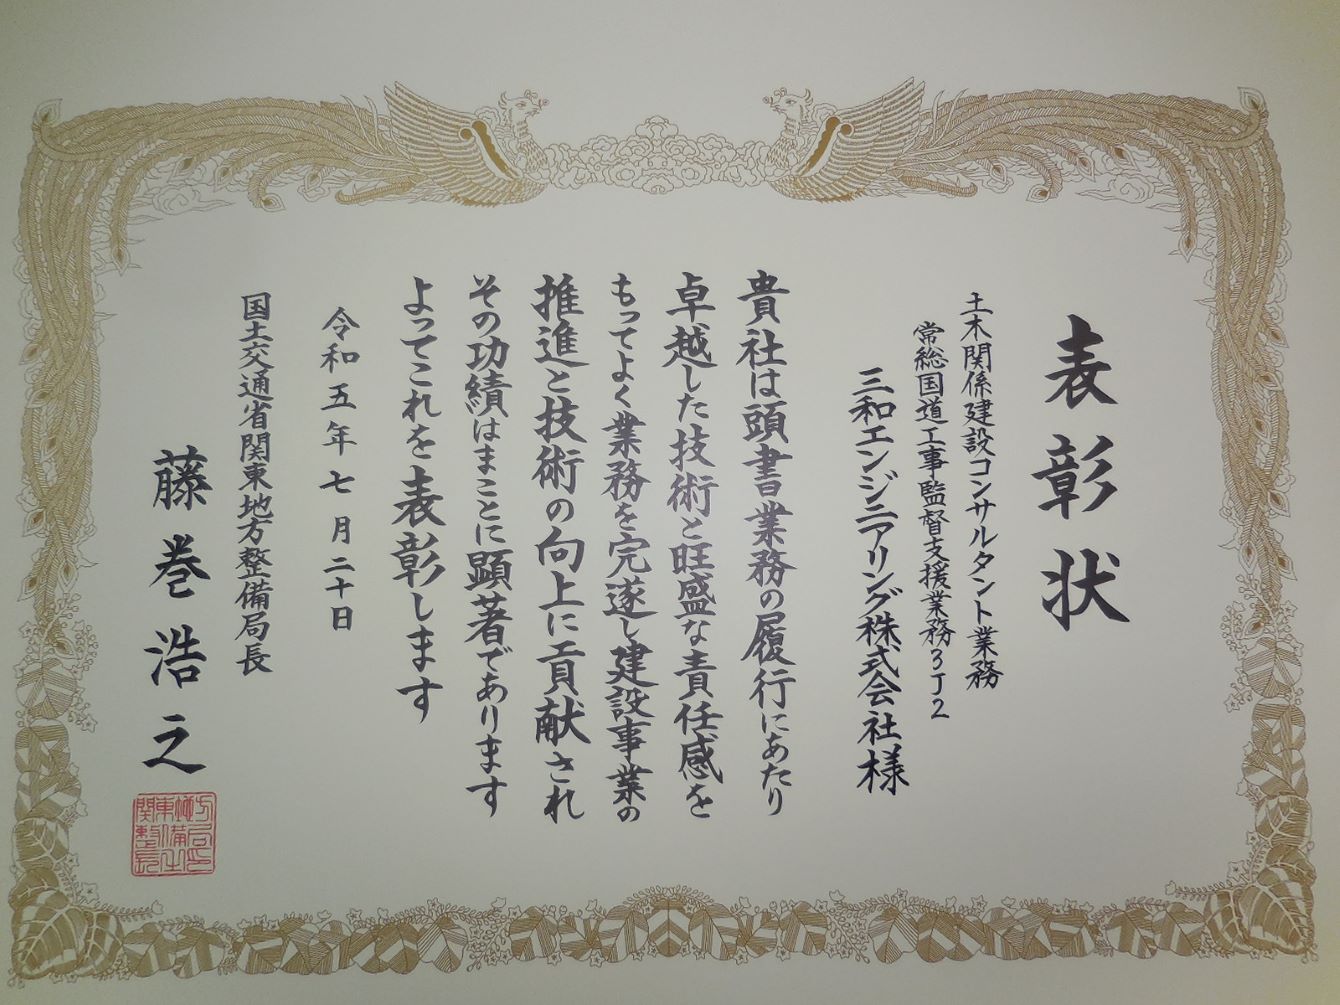 表彰状
土木関係建設コンサルタント業務
常総国道工事監督支援業務3J2
三和エンジニアリング株式会社様
貴社は頭書業務の履行にあたり
卓越した技術と旺盛な責任感を
もってよく業務を完遂し建設事業の
推進と技術の向上に貢献され
その功績はまことに顕著であります
よってこれを表彰します
令和五年七月二十日
国土交通省関東地方整備局長
藤巻浩之